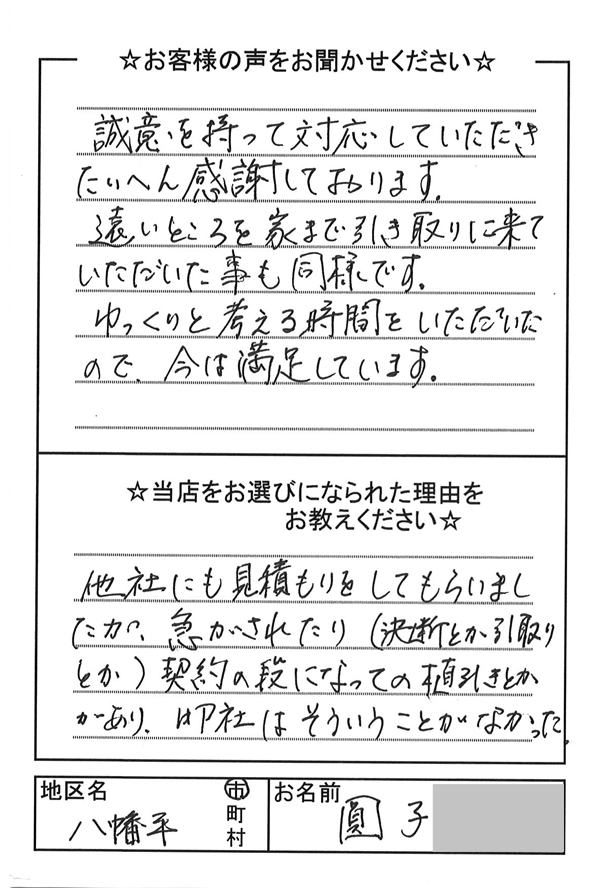 ☆お客様の声をお聞かせください☆
誠意を持って対応していただき
たいへん感謝しております。
遠いところを家まで引き取りに来て
いただいた事も同様です。
ゆっくりと考える時間をいただいた
ので、今は満足しています。
☆当店をお選びになられた理由を
お教えください☆
他社にも見積もりをしてもらいまし
たが、急がされたり(決断とか引取り
とか)契約の段になっての値引きとか
があり、御社はそういうことがなかった。
地区名
八幡平
市
町
村
お名前
圓子